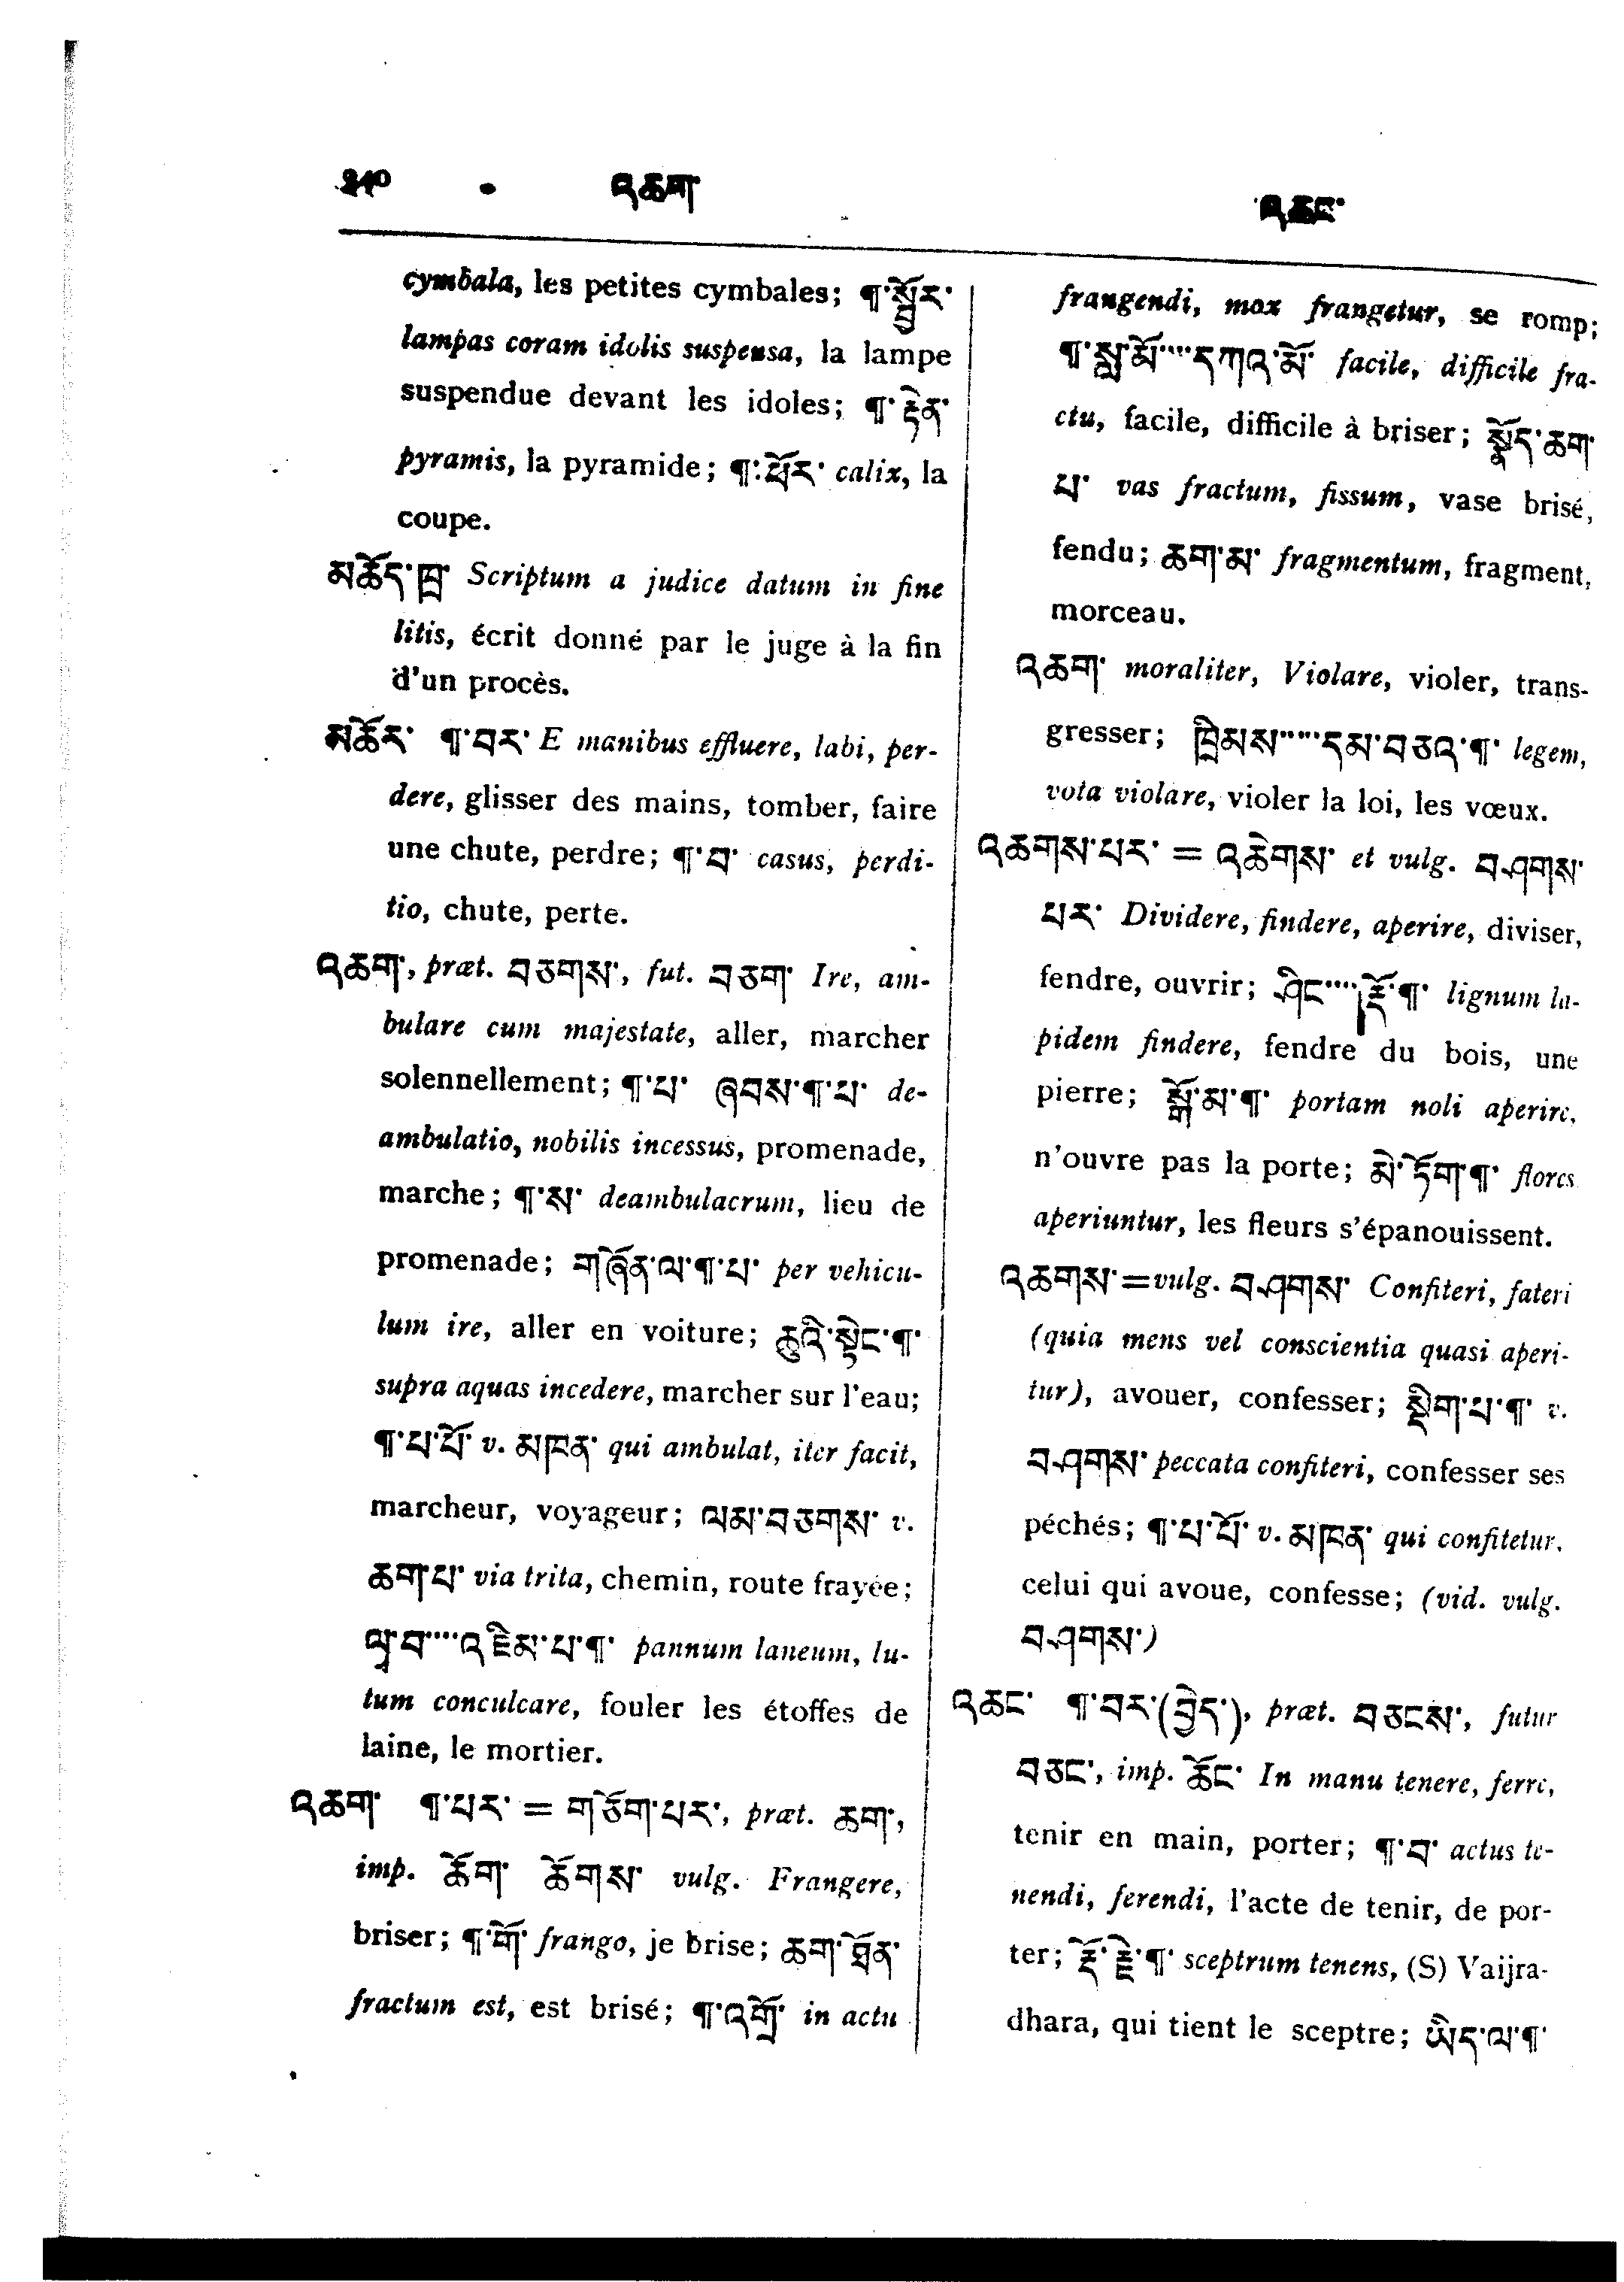 340 འཆག
འཆང་
cymbala, les petites cymbales; ¶་སྤྱོར་
lampas coram idolis suspensa, la lampe
suspendue devant les idoles; ¶་རྟེན་
pyramis, la pyramide; ¶་ཕོར་ calix, la
coupe.
མཆོད་ཁྲ་ Scriptum a judice datum in fine
litis, écrit donné par le juge à la fin
d'un procès.
མཆོར་ ¶་བར་ E manibus effluere, labi, per-
dere, glisser des mains, tomber, faire
une chute, perdre; ¶་བ་ casus, perdi-
tio, chute, perte.
འཆག་, præt. བཅགས་, fut. བཅག་ Ire, am-
bulare cum majestate, aller, marcher
solennellement; ¶་པ་ ཞབས་¶་པ་ de-
ambulatio, nobilis incessus, promenade,
marche; ¶་ས་ deambulacrum, lieu de
promenade; གཞོན་ལ་¶་པ་ per vehicu-
lum ire, aller en voiture; ཆུའི་སྟེང་¶་
supra aquas incedere, marcher sur l'eau;
¶་པ་པོ་ v. མཁན་ qui ambulat, iter facit,
marcheur, voyageur; ལམ་བཅགས་ v.
ཆག་པ་ via trita, chemin, route frayée;
ལྭ་བ་...འཇིམ་པ་¶་ pannum laneum, lu-
tum conculcare, fouler les étoffes de
laine, le mortier.
འཆག་ ¶་པར་ = གཅོག་པར་, præt. ཆག་,
imp. ཆོག་ ཆོགས་ vulg. Frangere,
briser; ¶་གོ་ frango, je brise; ཆག་ཐོན་
fractum est, est brisé; ¶་འགྲོ་ in actu
frangendi, mox frangetur, se romp;
¶་སླ་མོ་...དཀའ་མོ་ facile, difficile fra-
ctu, facile, difficile à briser; སྣོད་ཆག་
པ་ vas fractum, fissum, vase brisé,
fendu; ཆག་མ་ fragmentum, fragment,
morceau.
འཆག་ moraliter, Violare, violer, trans-
gresser; ཁྲིམས་...དམ་བཅའ་¶་ legem,
vota violare, violer la loi, les vœux.
འཆགས་པར་ = འཆེགས་ et vulg. བཤགས་
པར་ Dividere, findere, aperire, diviser,
fendre, ouvrir; ཤིང་...རྡོ་¶་ lignum la-
pidem findere, fendre du bois, une
pierre; སྒོ་མ་¶་ portam noli aperire,
n'ouvre pas la porte; མེ་ཏོག་¶་ flores
aperiuntur, les fleurs s'épanouissent.
འཆགས་ = vulg. བཤགས་ Confiteri, fateri
(quia mens vel conscientia quasi aperi-
tur), avouer, confesser; སྡིག་པ་¶་ v.
བཤགས་ peccata confiteri, confesser ses
péchés; ¶་པ་པོ་ v. མཁན་ qui confitetur,
celui qui avoue, confesse; (vid. vulg.
བཤགས་)
འཆང་ ¶་བར་(བྱེད་), præt. བཅངས་, futur
བཅང་, imp. ཆོང་ In manu tenere, ferre,
tenir en main, porter; ¶་བ་ actus te-
nendi, ferendi, l'acte de tenir, de por-
ter; རྡོ་རྗེ་¶་ sceptrum tenens, (S) Vaijra-
dhara, qui tient le sceptre; ཡིད་ལ་¶་